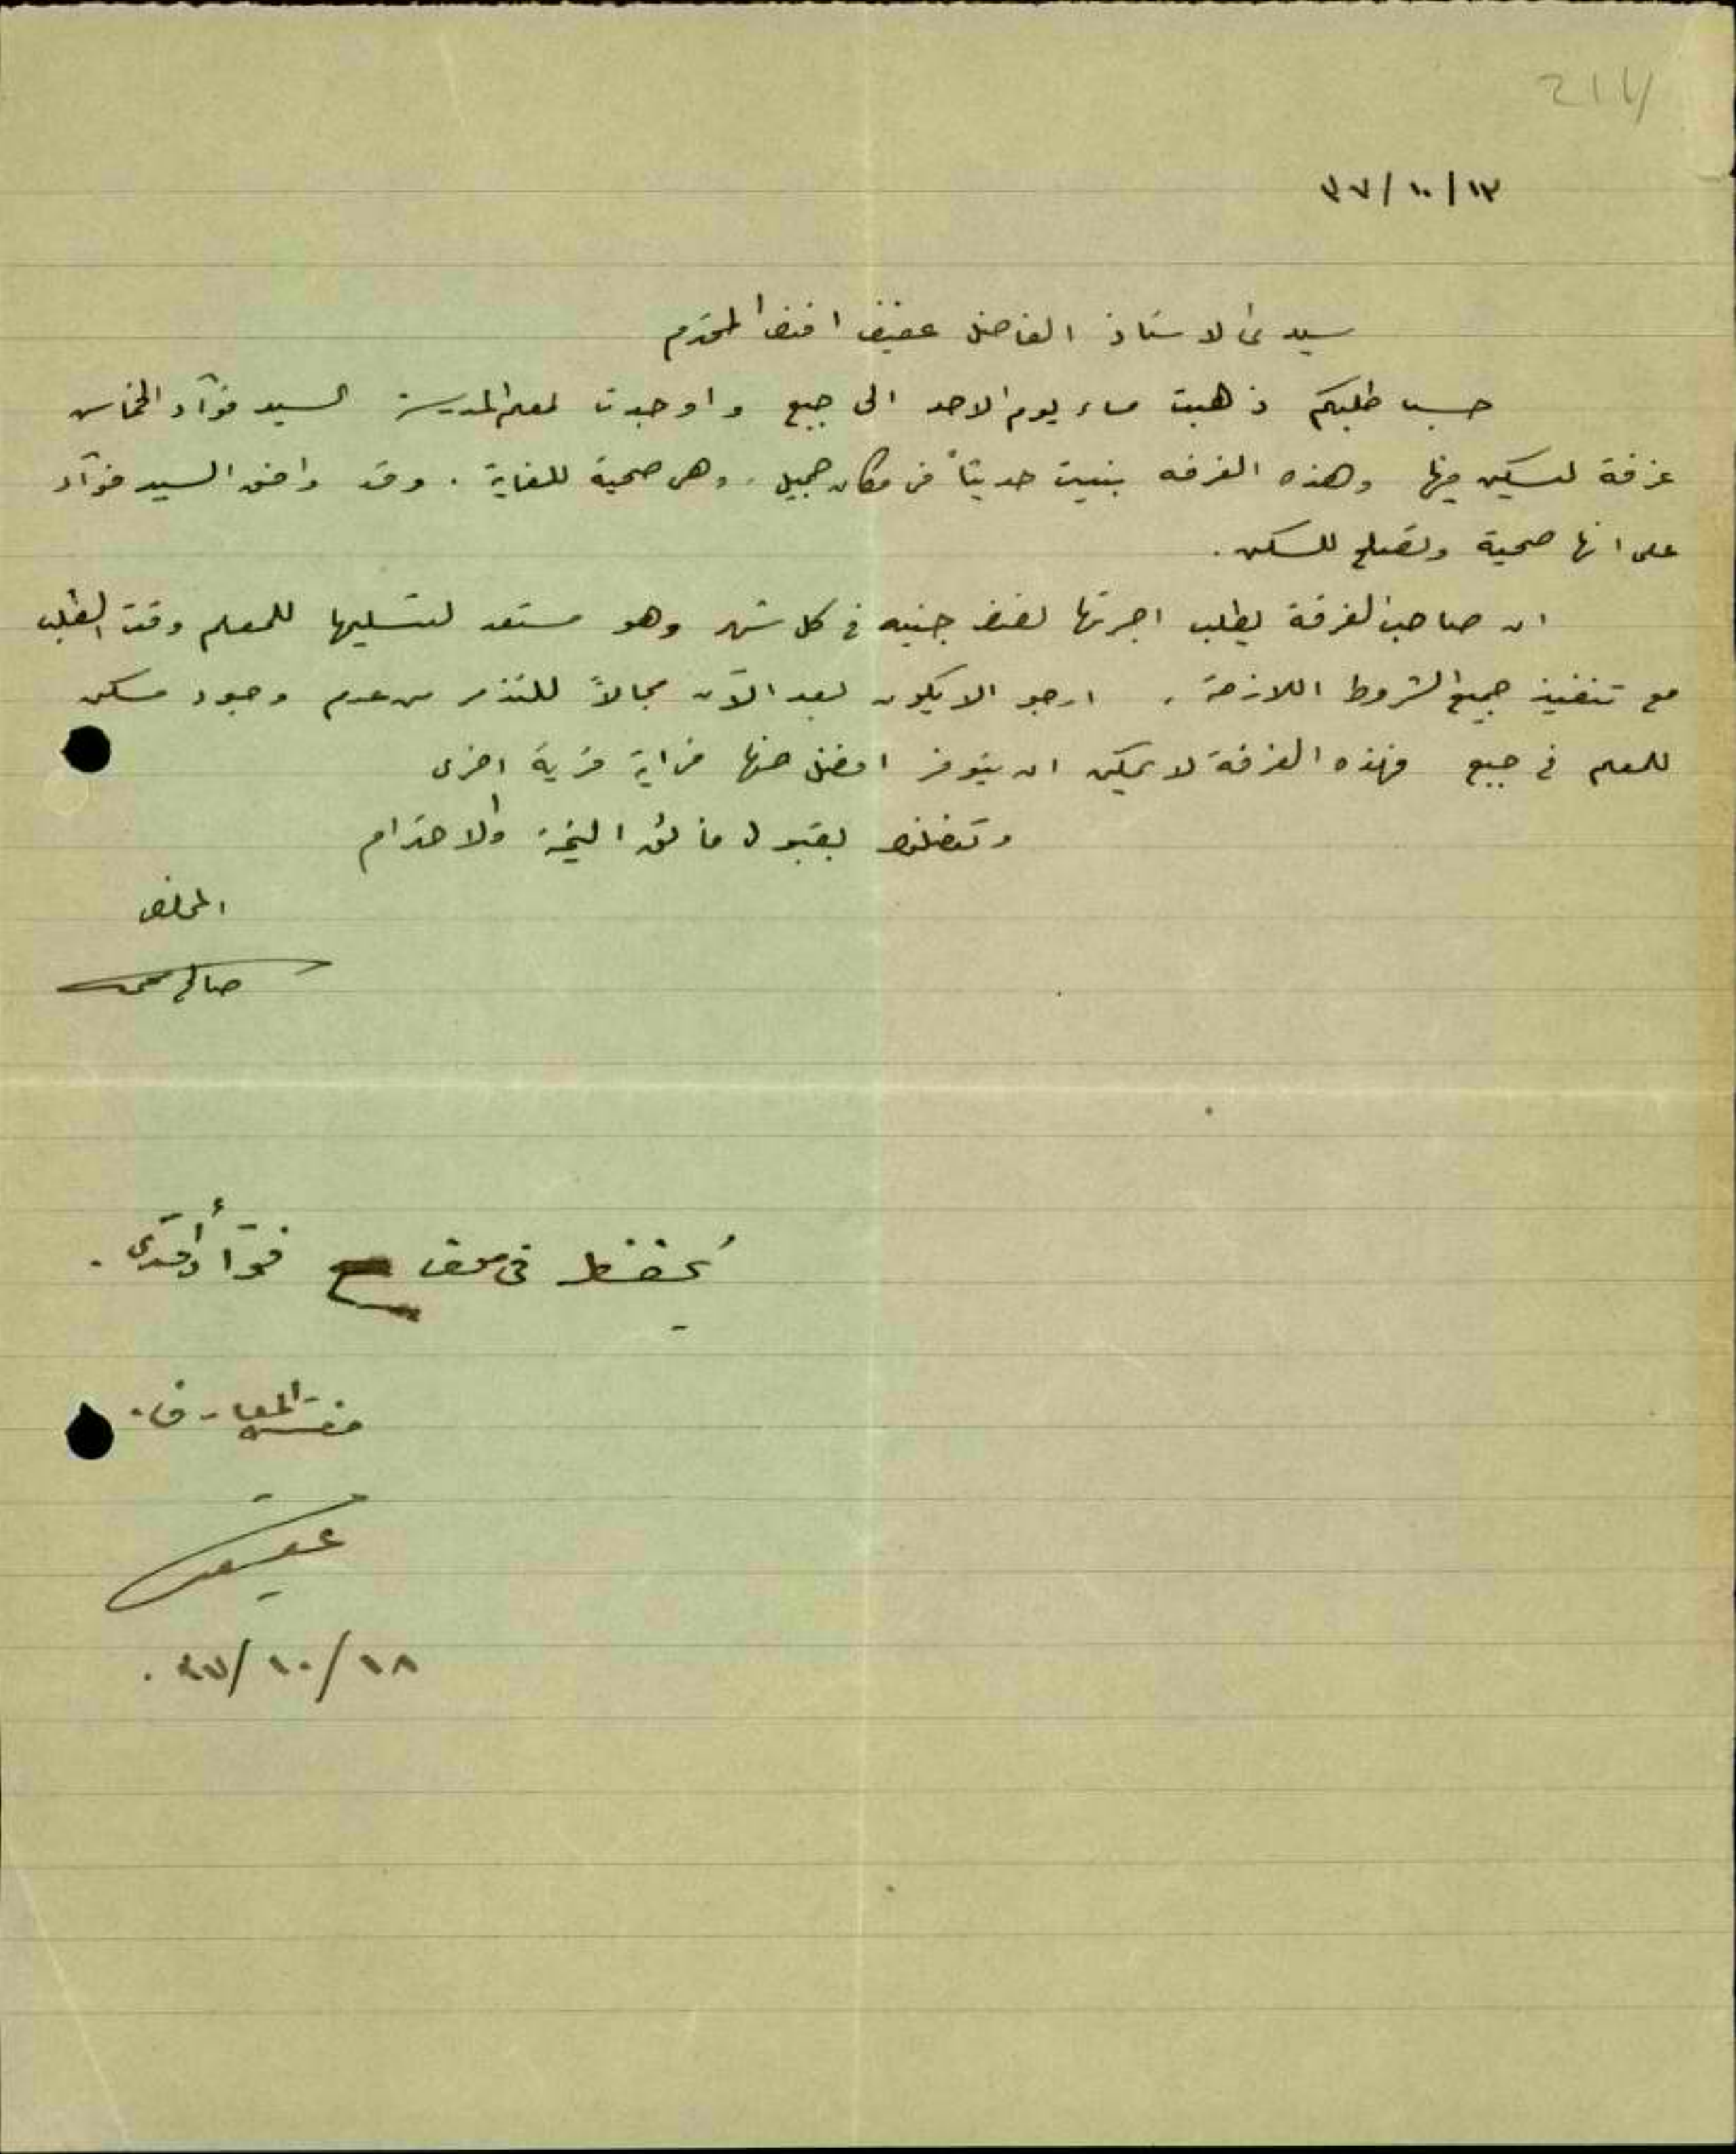 214
١٣/١٠/٣٧
سيدي الاستاذ الفاضل عفيف افندي المحترم
حسب طلبكم ذهبت مساء يوم الاحد الى جبع واوجدت لمعلم المدرسة السيد فوآد الخماس
غرفة ليسكن فيها وهذه الغرفه بنيت حديثاً في مكان جميل، وهي صحية للغاية. وقد وافق السيد فوآد
على انها صحية وتصلح للسكن.
ان صاحب الغرفة يطلب اجرتها نصف جنيه في كل شهر وهو مستعد لتسليمها للمعلم وقت الطلب
مع تنفيذ جميع الشروط اللازمة. ارجو الا يكون بعد الآن مجالاً للتذمر من عدم وجود مسكن
للمعلم في جبع فهذه الغرفة لا يمكن ان يتوفر افضل منها في اية قرية اخرى
وتفضلوا بقبول فائق التحية والاحترام
المخلص
صالح
يُحفظ في ملف فؤاد أفندي.
مفتش المعارف.
عفيف
١٨/١٠/٣٧.